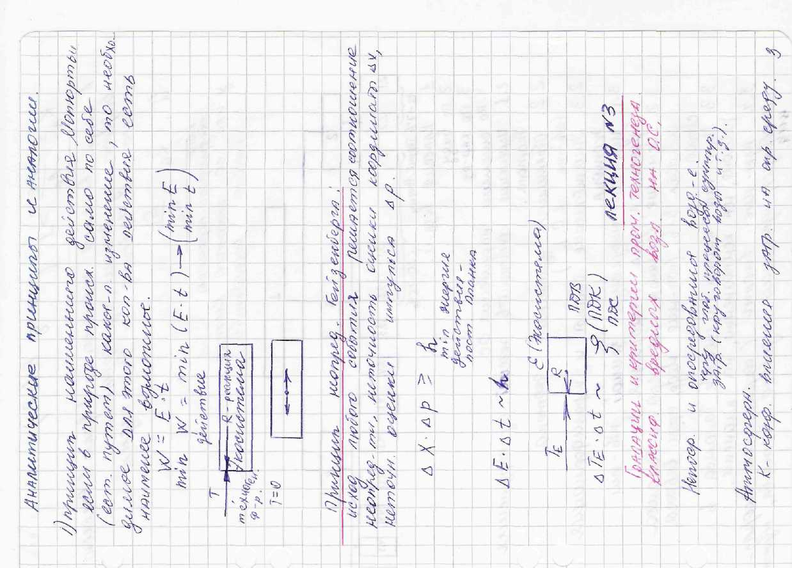 Аналитические принципы и аналогии.
1) принцип наименьшего действия Мопертьи
если в природе происх. само по себе
(ест. путем) какое-л изменение, то необхо-
димое для этого кол-во действия есть
наименее возможное.
W = E·t
min W = min (E·t) → (min E
min t)
действие
T
R-реакция
экосистема
технол.
ф-р.
T=0
Принцип неопред. Гейзенберга:
исход любого события решается соотношение
неопред-ти, неточность оценки координат Δx,
неточн. оценки импульса Δp.
Δx·Δp ≥ h
min энергия
действия-
пост Планка
ΔE·Δt ~ h
E (Экосистема)
TE
R
ΔTE·Δt ~ ξ (ПДК)
ПДВ
ПДС
ЛЕКЦИЯ N3
Градации и критерии пром. техногенеза
вредных возд. на О.С.
Непоср и опосредованное возд-е.
через
загр. (круговорот воды и т.д.).
Атмосферн.
K- коэф. влияния загр. на окр среду. З